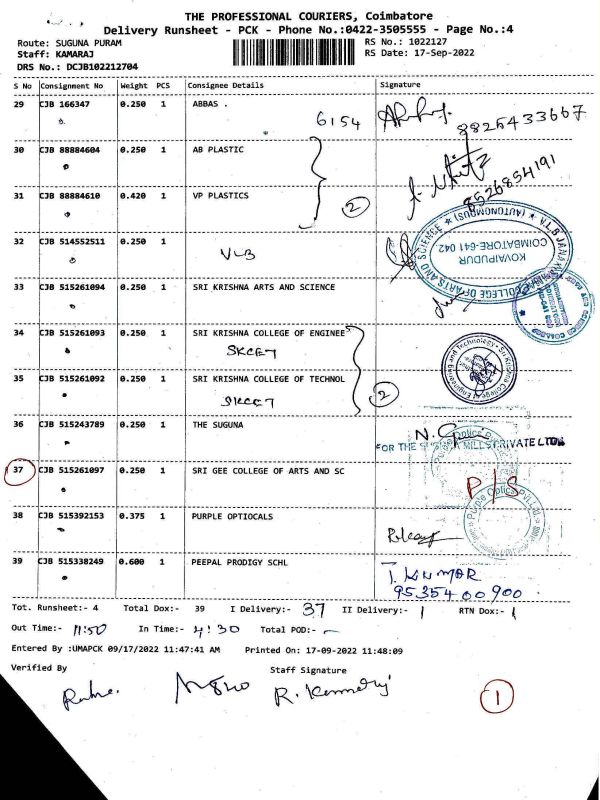 THE PROFESSIONAL COURIERS, Coimbatore
Delivery Runsheet - PCK - Phone No.:0422-3505555 - Page No.:4
Route: SUGUNA PURAM
RS No.: 1022127
Staff: KAMARAJ
RS Date: 17-Sep-2022
DRS No.: DCJB102212704
S No Consignment No Weight PCS Consignee Details Signature
29 CJB 166347 0.250 1 ABBAS .
6154 8825433667
30 CJB 88884604 0.250 1 AB PLASTIC
31 CJB 88884610 0.420 1 VP PLASTICS
2 8526854191
32 CJB 514552511 0.250 1
VLB
KOVAIPUDUR
COIMBATORE-641 042
33 CJB 515261094 0.250 1 SRI KRISHNA ARTS AND SCIENCE
34 CJB 515261093 0.250 1 SRI KRISHNA COLLEGE OF ENGINEE
SKCET
35 CJB 515261092 0.250 1 SRI KRISHNA COLLEGE OF TECHNOL
SKCET 2
36 CJB 515243789 0.250 1 THE SUGUNA
37 CJB 515261097 0.250 1 SRI GEE COLLEGE OF ARTS AND SC
P/S
38 CJB 515392153 0.375 1 PURPLE OPTIOCALS
39 CJB 515338249 0.600 1 PEEPAL PRODIGY SCHL
T. KUMAR
9535400900
Tot. Runsheet:- 4 Total Dox:- 39 I Delivery:- 37 II Delivery:- 1 RTN Dox:- 1
Out Time:- 11:50 In Time:- 4:30 Total POD:- ~
Entered By :UMAPCK 09/17/2022 11:47:41 AM Printed On: 17-09-2022 11:48:09
Verified By Staff Signature
1